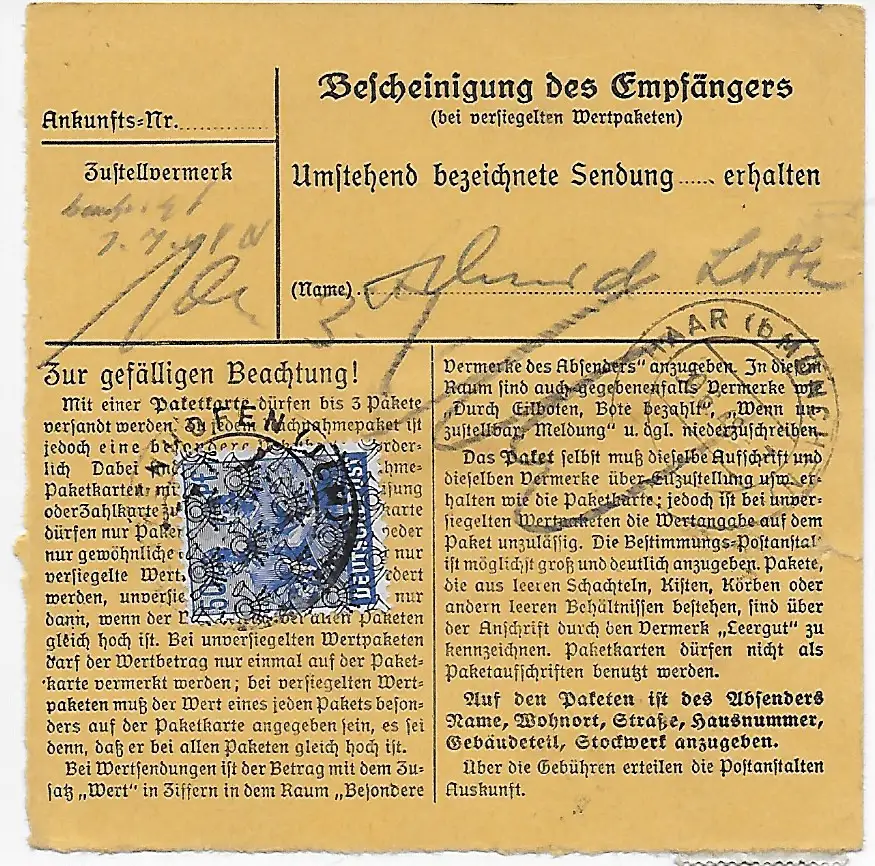 Ankunfts=Nr.
Zustellvermerk
Bescheinigung des Empfängers
(bei versiegelten Wertpaketen)
Umstehend bezeichnete Sendung ..... erhalten
(Name)
Loth
HAAR (b MÜNCH
Zur gefälligen Beachtung!
Mit einer Paketkarte dürfen bis 3 Pakete
versandt werden. Zu jedem Nachnahmepaket ist
jedoch eine besondere
lich Dabei
Paketkarten
oder Zahlkarte zu karte
dürfen nur
nur gewöhnliche nur
versiegelte Wert
werden, unversie nur
dann, wenn der bei allen Paketen
gleich hoch ist. Bei unversiegelten Wertpaketen
darf der Wertbetrag nur einmal auf der Paket=
karte vermerkt werden; bei versiegelten Wert=
paketen muß der Wert eines jeden Pakets beson=
ders auf der Paketkarte angegeben sein, es sei
denn, daß er bei allen Paketen gleich hoch ist.
Bei Wertsendungen ist der Betrag mit dem Zu=
satz „Wert" in Ziffern in dem Raum „Besondere
50
DEUTSCHE POST
Vermerke des Absenders" anzugeben. In diesem
Raum sind auch gegebenenfalls Vermerke wie
„Durch Eilboten, Bote bezahlt", „Wenn un=
zustellbar, Meldung" u. dgl. niederzuschreiben.
Das Paket selbst muß dieselbe Aufschrift und
dieselben Vermerke über Eilzustellung usw. er=
halten wie die Paketkarte; jedoch ist bei unver=
siegelten Wertpaketen die Wertangabe auf dem
Paket unzulässig. Die Bestimmungs=Postanstalt
ist möglichst groß und deutlich anzugeben. Pakete,
die aus leeren Schachteln, Kisten, Körben oder
andern leeren Behältnissen bestehen, sind über
der Anschrift durch den Vermerk „Leergut" zu
kennzeichnen. Paketkarten dürfen nicht als
Paketaufschriften benutzt werden.
Auf den Paketen ist des Absenders
Name, Wohnort, Straße, Hausnummer,
Gebäudeteil, Stockwerk anzugeben.
Über die Gebühren erteilen die Postanstalten
Auskunft.